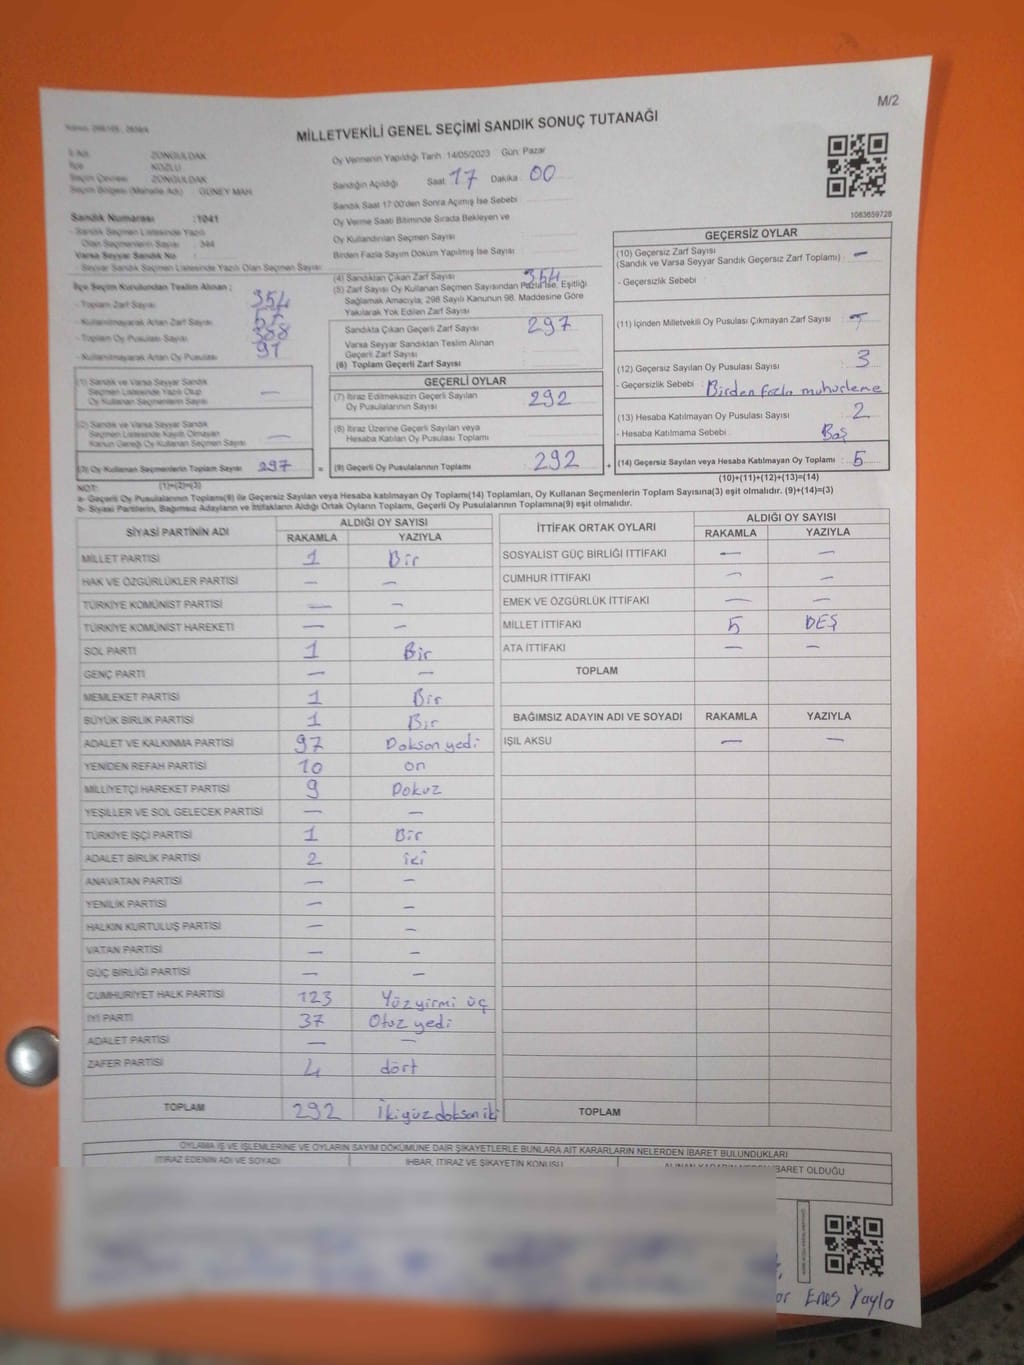 M/2
MİLLETVEKİLİ GENEL SEÇİMİ SANDIK SONUÇ TUTANAĞI
İl Adı : ZONGULDAK
İlçe : KOZLU
Seçim Çevresi : ZONGULDAK
Seçim Bölgesi (Mahalle Adı) : GÜNEY MAH.
Sandık Numarası :1041
- Sandık Seçmen Listesinde Yazılı
Olan Seçmenlerin Sayısı : 344
Varsa Seyyar Sandık No
- Seyyar Sandık Seçmen Listesinde Yazılı Olan Seçmen Sayısı :
İlçe Seçim Kurulundan Teslim Alınan ;
- Toplam Zarf Sayısı : 354
- Kullanılmayarak Artan Zarf Sayısı : 57
- Toplam Oy Pusulası Sayısı : 388
- Kullanılmayarak Artan Oy Pusulası : 91
(1) Sandık ve Varsa Seyyar Sandık
Seçmen Listesinde Yazılı Olup
Oy Kullanan Seçmenlerin Sayısı : —
(2) Sandık ve Varsa Seyyar Sandık
Seçmen Listesinde Kayıtlı Olmayan
Kanun Gereği Oy Kullanan Seçmen Sayısı : —
(3) Oy Kullanan Seçmenlerin Toplam Sayısı : 297
(1)+(2)=(3)
Oy Vermenin Yapıldığı Tarih :14/05/2023 Gün: Pazar
Sandığın Açıldığı Saat : 17 Dakika : 00
Sandık Saat 17:00'den Sonra Açımış İse Sebebi :
Oy Verme Saati Bitiminde Sırada Bekleyen ve
Oy Kullandırılan Seçmen Sayısı :
Birden Fazla Sayım Döküm Yapılmış İse Sayısı :
(4) Sandıktan Çıkan Zarf Sayısı : 354
(5) Zarf Sayısı Oy Kullanan Seçmen Sayısından Fazla İse, Eşitliği
Sağlamak Amacıyla, 298 Sayılı Kanunun 98. Maddesine Göre
Yakılarak Yok Edilen Zarf Sayısı :
Sandıkta Çıkan Geçerli Zarf Sayısı : 297
Varsa Seyyar Sandıktan Teslim Alınan
Geçerli Zarf Sayısı :
(6) Toplam Geçerli Zarf Sayısı :
GEÇERLİ OYLAR
(7) İtiraz Edilmeksizin Geçerli Sayılan
Oy Pusulalarının Sayısı : 292
(8) İtiraz Üzerine Geçerli Sayılan veya
Hesaba Katılan Oy Pusulası Toplamı :
= (9) Geçerli Oy Pusulalarının Toplamı : 292 +
1083659728
GEÇERSİZ OYLAR
(10) Geçersiz Zarf Sayısı
(Sandık ve Varsa Seyyar Sandık Geçersiz Zarf Toplamı) : —
- Geçersizlik Sebebi :
(11) İçinden Milletvekili Oy Pusulası Çıkmayan Zarf Sayısı :
(12) Geçersiz Sayılan Oy Pusulası Sayısı : 3
- Geçersizlik Sebebi : Birden fazla mühürleme
(13) Hesaba Katılmayan Oy Pusulası Sayısı : 2
- Hesaba Katılmama Sebebi : Boş
(14) Geçersiz Sayılan veya Hesaba Katılmayan Oy Toplamı : 5
(10)+(11)+(12)+(13)=(14)
NOT:
a- Geçerli Oy Pusulalarının Toplamı(9) ile Geçersiz Sayılan veya Hesaba katılmayan Oy Toplamı(14) Toplamları, Oy Kullanan Seçmenlerin Toplam Sayısına(3) eşit olmalıdır. (9)+(14)=(3)
b- Siyasi Partilerin, Bağımsız Adayların ve İttifakların Aldığı Ortak Oyların Toplamı, Geçerli Oy Pusulalarının Toplamına(9) eşit olmalıdır.
SİYASİ PARTİNİN ADI ALDIĞI OY SAYISI
RAKAMLA YAZIYLA
MİLLET PARTİSİ 1 Bir
HAK VE ÖZGÜRLÜKLER PARTİSİ — —
TÜRKİYE KOMÜNİST PARTİSİ — —
TÜRKİYE KOMÜNİST HAREKETİ — —
SOL PARTİ 1 Bir
GENÇ PARTİ — —
MEMLEKET PARTİSİ 1 Bir
BÜYÜK BİRLİK PARTİSİ 1 Bir
ADALET VE KALKINMA PARTİSİ 97 Dokson yedi
YENİDEN REFAH PARTİSİ 10 on
MİLLİYETÇİ HAREKET PARTİSİ 9 Dokuz
YEŞİLLER VE SOL GELECEK PARTİSİ — —
TÜRKİYE İŞÇİ PARTİSİ 1 Bir
ADALET BİRLİK PARTİSİ 2 iki
ANAVATAN PARTİSİ — —
YENİLİK PARTİSİ — —
HALKIN KURTULUŞ PARTİSİ — —
VATAN PARTİSİ — —
GÜÇ BİRLİĞİ PARTİSİ — —
CUMHURİYET HALK PARTİSİ 123 Yüz yirmi üç
İYİ PARTİ 37 Otuz yedi
ADALET PARTİSİ — —
ZAFER PARTİSİ 4 dört
TOPLAM 292 İkiyüz dokson iki
İTTİFAK ORTAK OYLARI ALDIĞI OY SAYISI
RAKAMLA YAZIYLA
SOSYALİST GÜÇ BİRLİĞİ İTTİFAKI — —
CUMHUR İTTİFAKI — —
EMEK VE ÖZGÜRLÜK İTTİFAKI — —
MİLLET İTTİFAKI 5 BEŞ
ATA İTTİFAKI — —
TOPLAM
BAĞIMSIZ ADAYIN ADI VE SOYADI RAKAMLA YAZIYLA
IŞIL AKSU — —
TOPLAM
OYLAMA İŞ VE İŞLEMLERİNE VE OYLARIN SAYIM DÖKÜMÜNE DAİR ŞİKAYETLERLE BUNLARA AİT KARARLARIN NELERDEN İBARET BULUNDUKLARI
İTİRAZ EDENİN ADI VE SOYADI İHBAR, İTİRAZ VE ŞİKAYETİN KONUSU ALINAN KARARIN NEDEN İBARET OLDUĞU
Enes Yayla